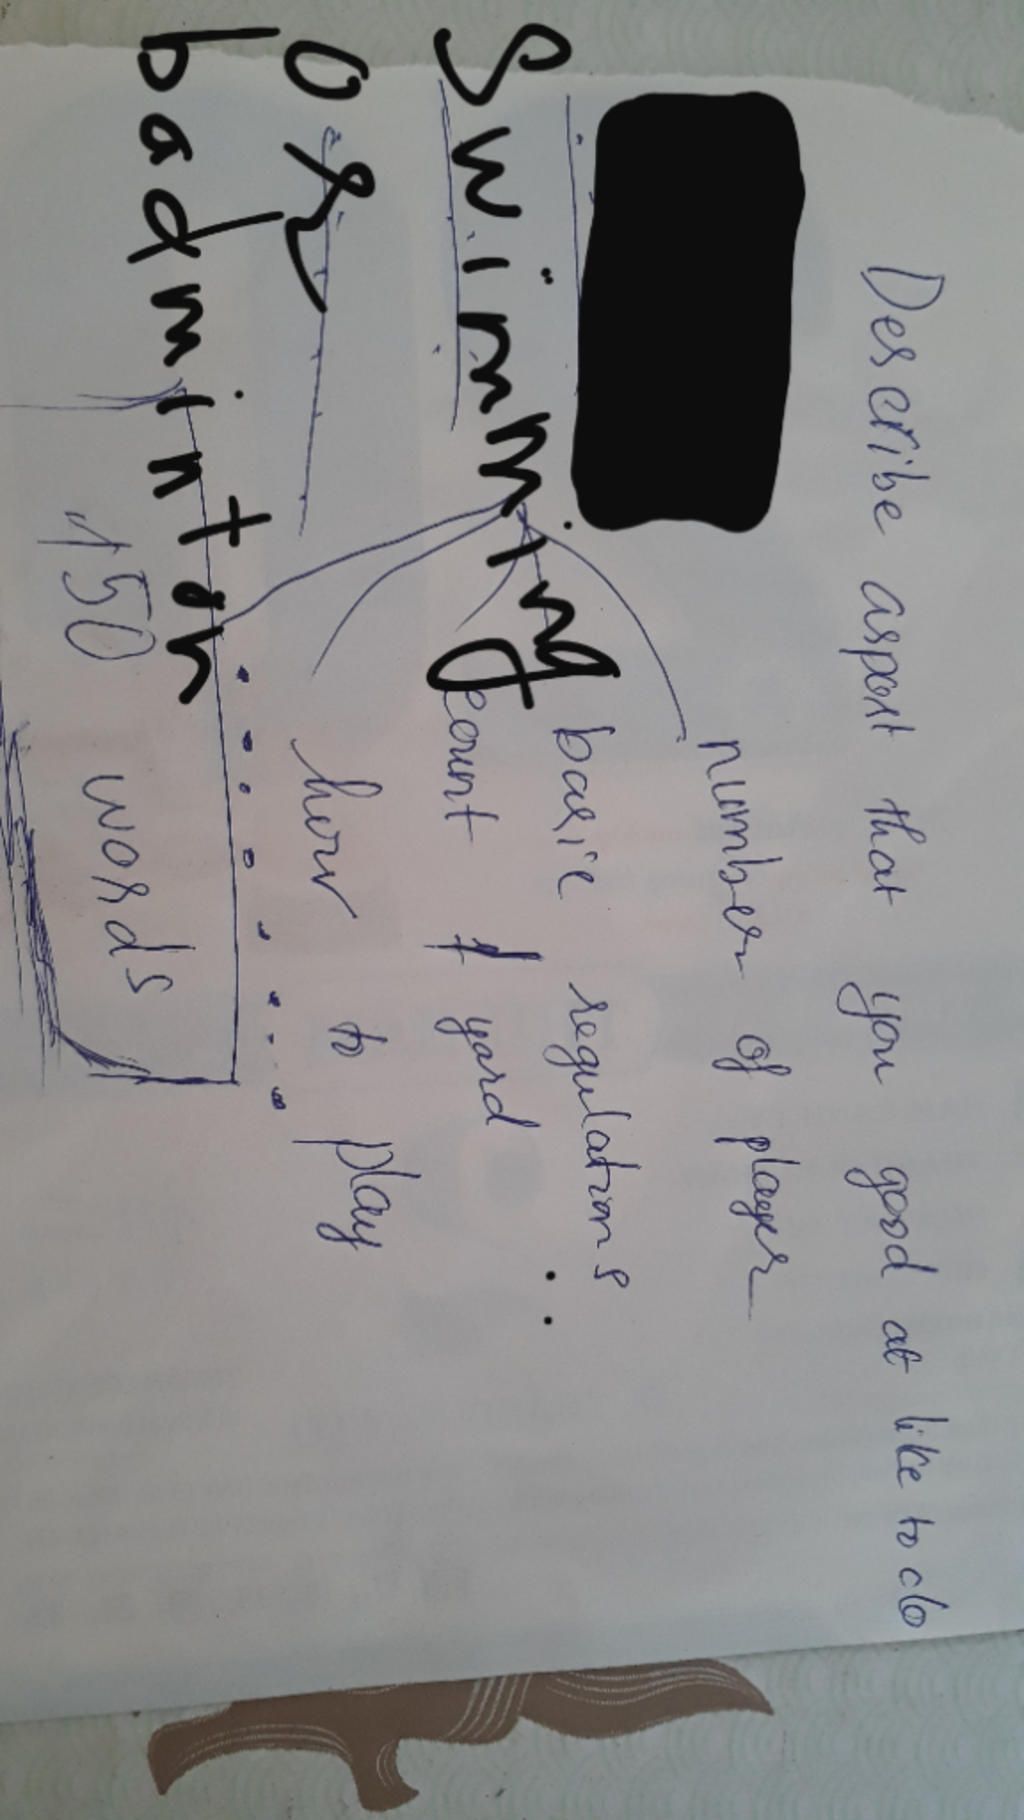 Describe asport that you good at like to do
number of player
Swimming
basic regulations
count & yard
or
how to play
badminton
150 words